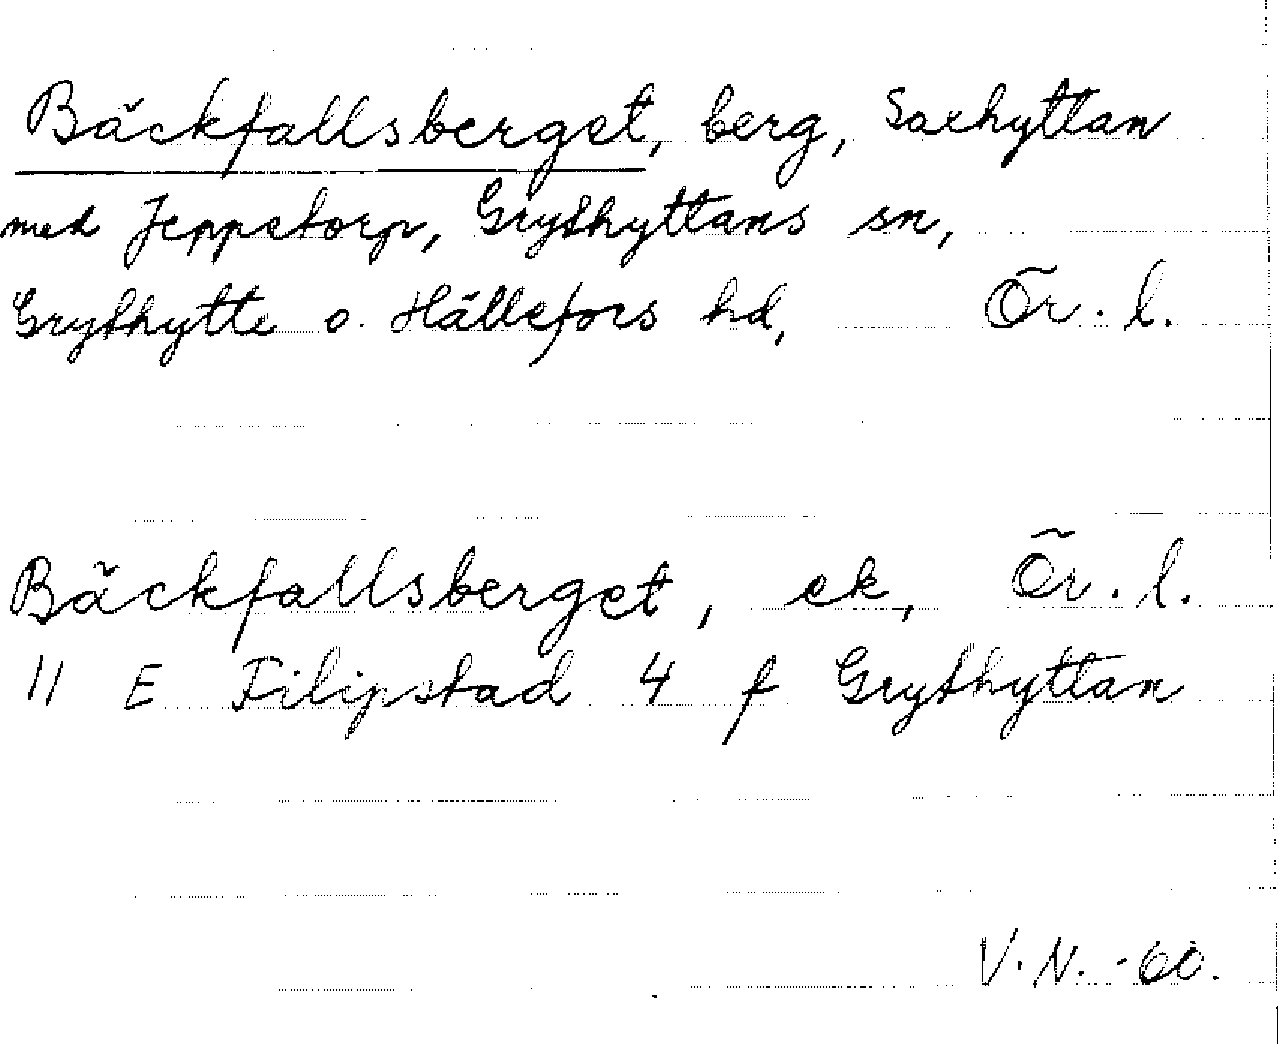 Bäckfallsberget, berg, Saxhyttan
med Jeppetorp, Grythyttans sn,
Grythytte o. Hällefors hd, Ör. l.
Bäckfallsberget, ek, Ör. l.
11 E Filipstad 4 f Grythyttan
V. N. -60.